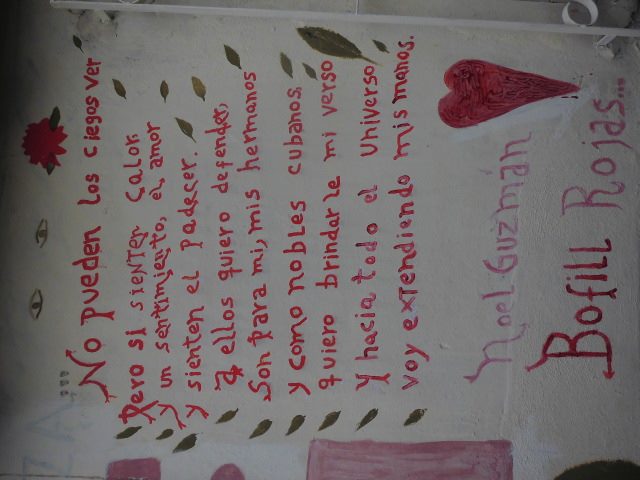 ZA...
No pueden los ciegos ver
Pero si sienten calor
y un sentimiento, el amor
y sienten el padecer.
A ellos quiero defender,
Son para mi, mis hermanos
y como nobles cubanos,
quiero brindarle mi verso
Y hacia todo el Universo
voy extendiendo mis manos.
Noel Guzmán
Bofill Rojas...